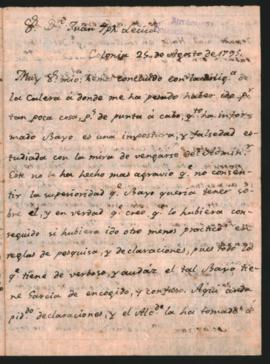 Sr. Dn. Juan Jph. Lecoq
Colonia 25. de Agosto de 1795.
Muy Sr. mio: hemos concluido con la dilig.a de
la Calera á donde me ha pesado haber ido p.r
tan poca cosa, p.s de punta á cabo, q.to ha infor-
mado Bayo es una impostura, y falsedad es-
tudiada con la mira de vengarse del
Este no le ha hecho mas agravio q.e no consen-
tir la superioridad q.e Bayo queria tener so-
bre el, y en verdad q.e creo q.e lo hubiera con-
seguido si hubiera ido otro menos practico en
reglas de pesquisa, y declaraciones, pues todo lo
q.e tiene de verboso, y audaz el tal Bayo tie-
ne Garcia de encogido, y confuso. Aqui
declaraciones, y el Alc.de la ha tomado á